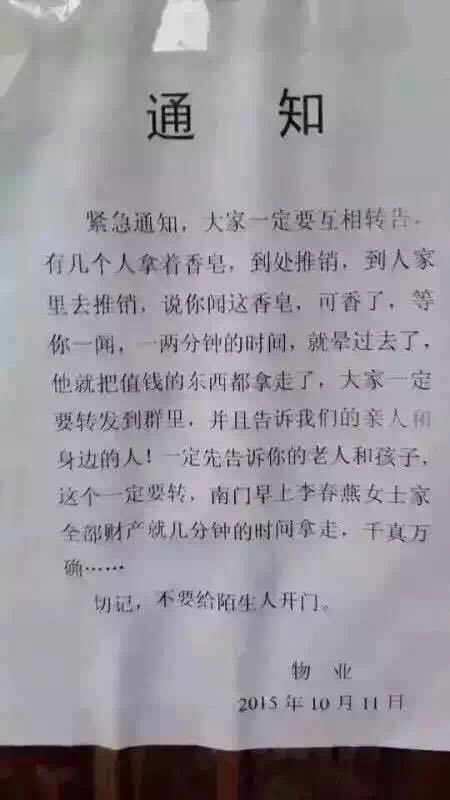 通 知
紧急通知，大家一定要互相转告，
有几个人拿着香皂，到处推销，到人家
里去推销，说你闻这香皂，可香了，等
你一闻，一两分钟的时间，就晕过去了，
他就把值钱的东西都拿走了，大家一定
要转发到群里，并且告诉我们的亲人和
身边的人！一定先告诉你的老人和孩子，
这个一定要转，南门早上李春燕女士家
全部财产就几分钟的时间拿走，千真万
确……
切记，不要给陌生人开门。
物 业
2015年10月11日